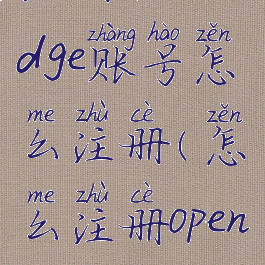 zhàng hào zěn
dge账号怎
me zhù cè zěn
么注册(怎
me zhù cè
么注册open